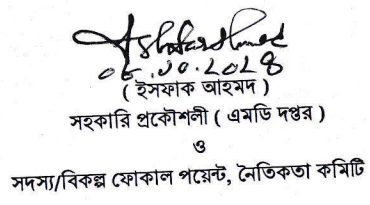 ০৮.১০.২০২৪
( ইসফাক আহমদ )
সহকারি প্রকৌশলী ( এমডি দপ্তর )
ও
সদস্য/বিকল্প ফোকাল পয়েন্ট, নৈতিকতা কমিটি